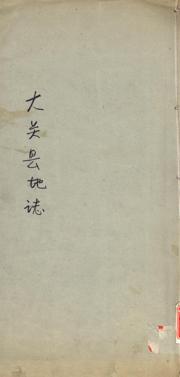 大关县地誌